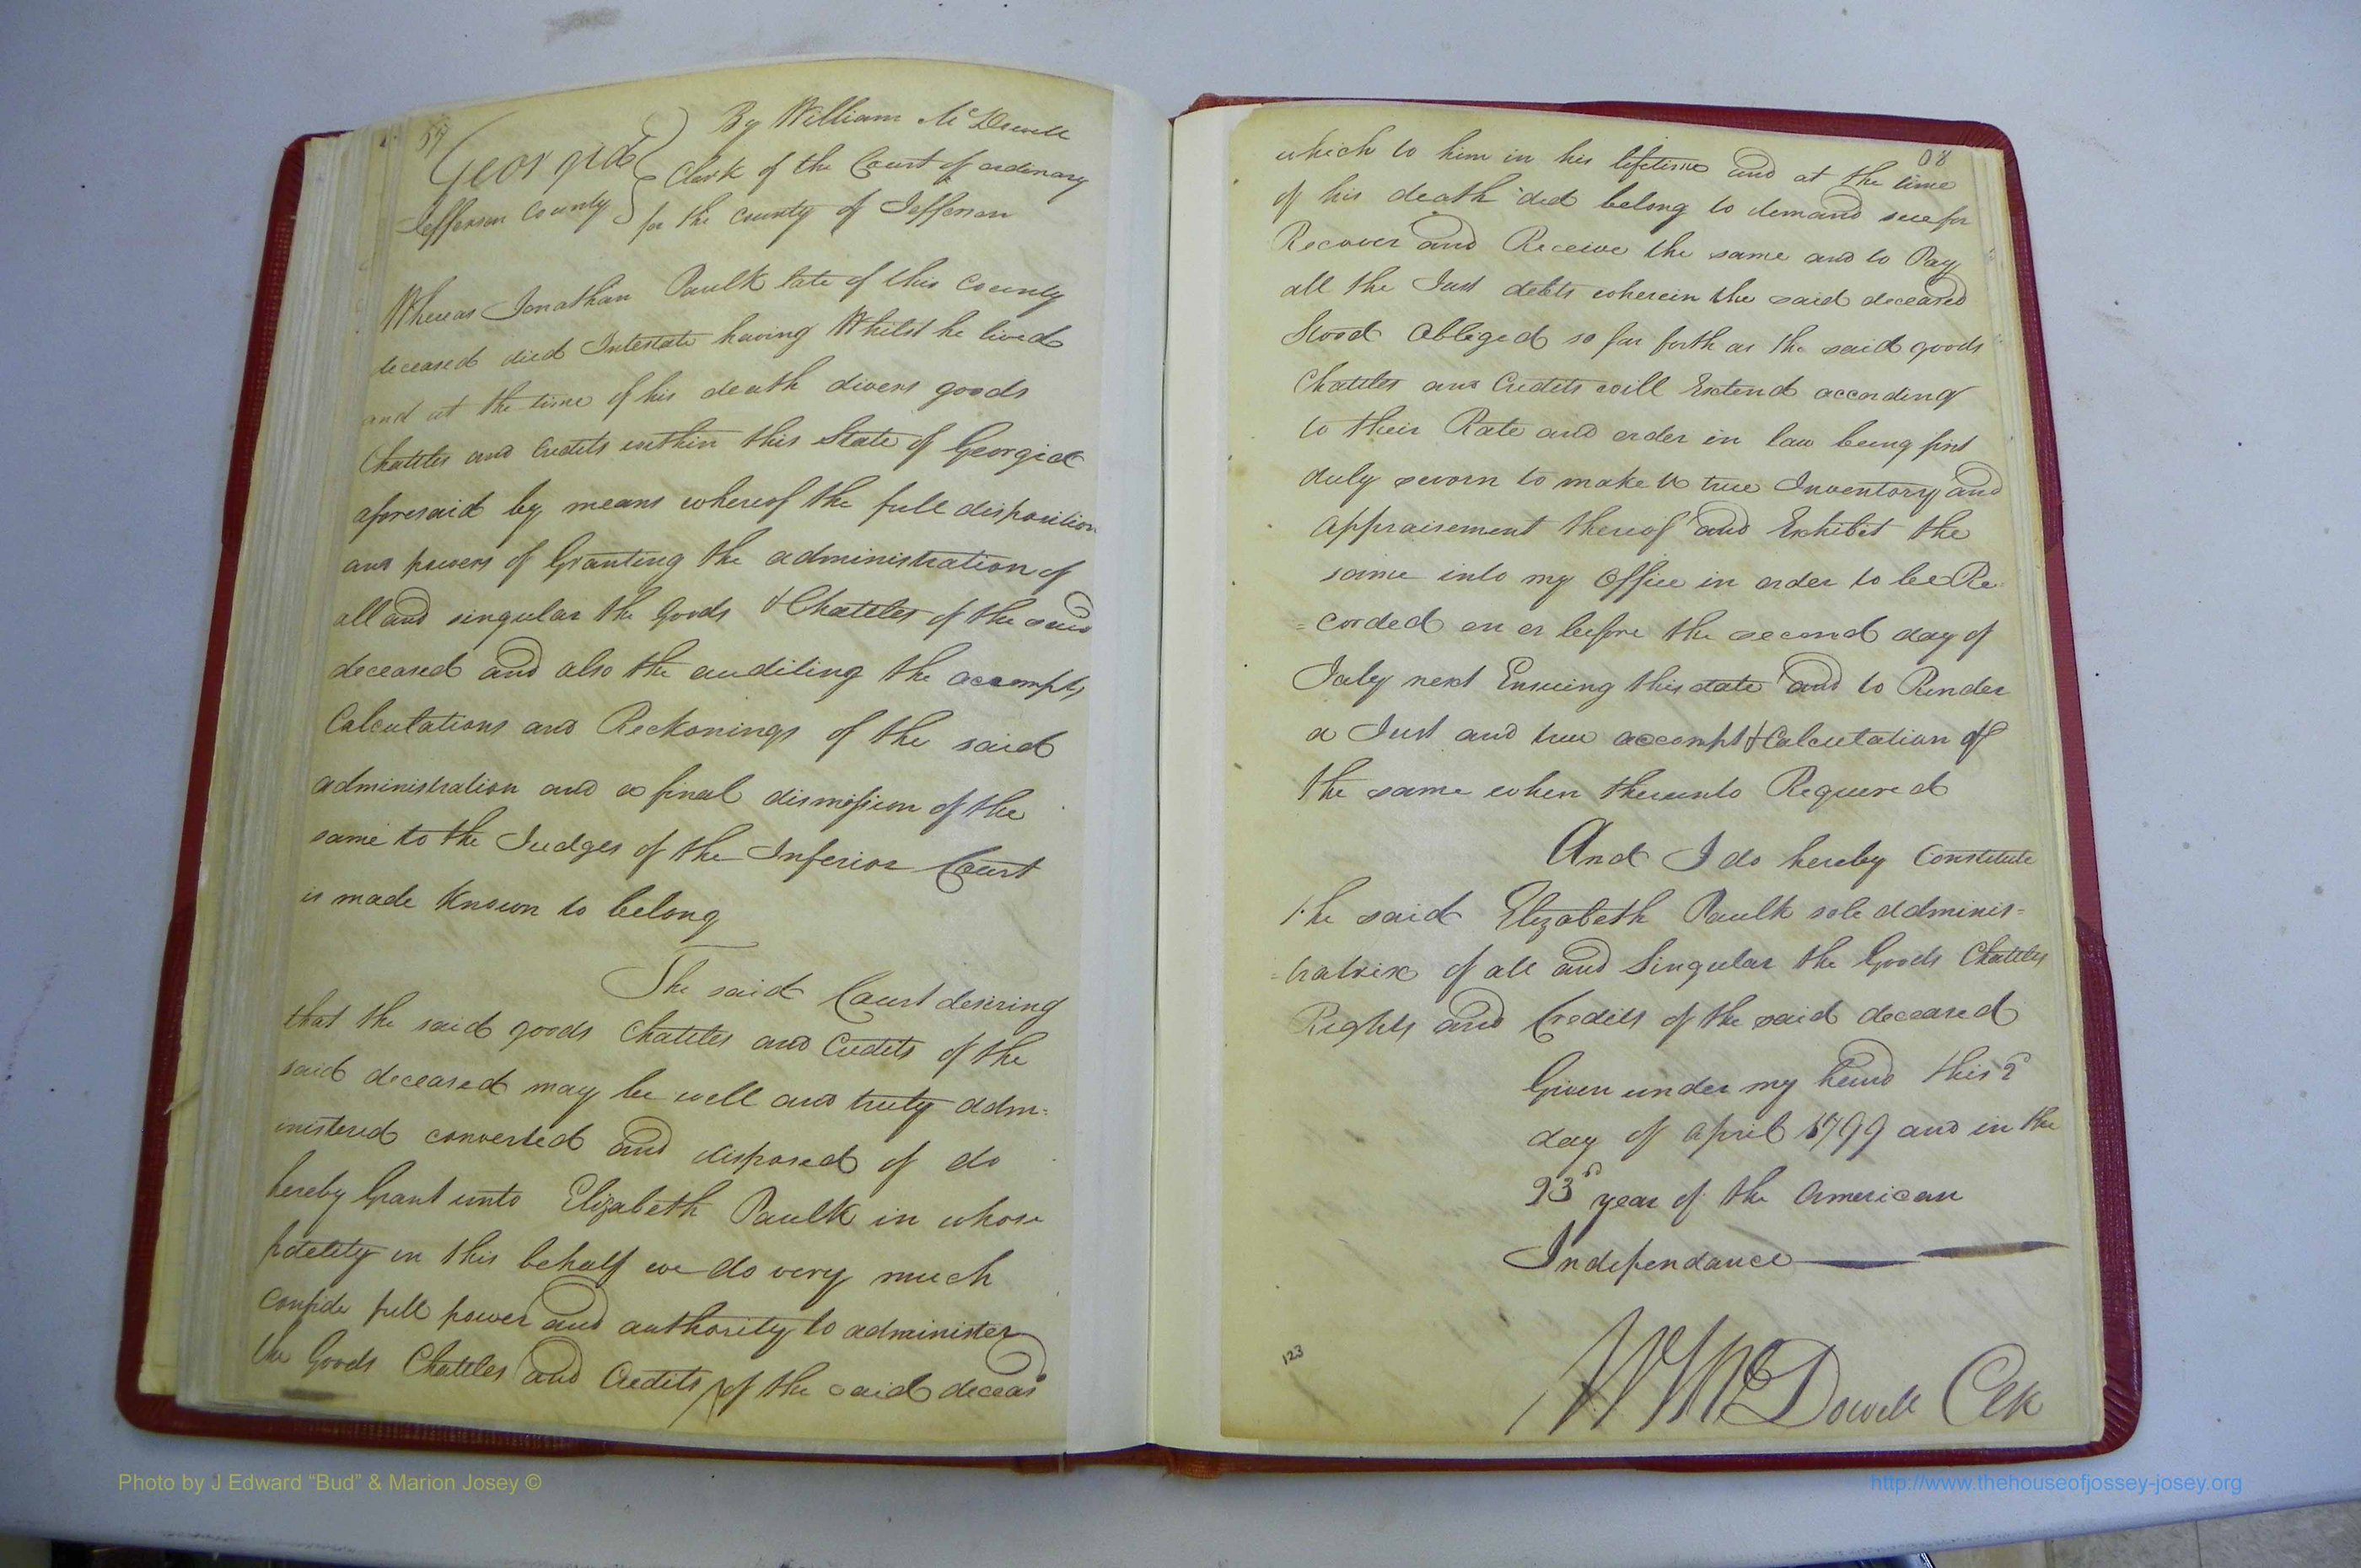 57
By William McDowell
Georgia
Clerk of the Court of ordinary
Jefferson County
for the County of Jefferson
Whereas Jonathan Paulk late of this County
deceased died Intestate having Whilst he lived
and at the time of his death divers goods
Chatles and Credits within this State of Georgia
aforesaid by means whereof the full disposition
and powers of Granting the administration of
all and singular the Goods & Chateles of the said
deceased and also the auditing the accompts
Calculations and Reckonings of the said
administration and a final dismission of the
same to the Judges of the Inferior Court
is made Known to belong
The said Court desiring
that the said goods Chatles and Credits of the
said deceased may be well and truly adm-
inistered converted and disposed of do
hereby Grant unto Elizabeth Paulk in whose
fidelity in this behalf we do very much
confide full power and authority to administer
the Goods Chatles and Credits of the said deceasd
which to him in his lifetime and at the time
of his death did belong to demand sue for
Recover and Receive the same and to Pay
all the Just debts wherein the said deceased
Stood Obliged so far forth as the said goods
Chatles and Credits will Extend according
to their Rate and order in law being first
duly sworn to make a true Inventory and
appraisement thereof and Exhibit the
same into my Office in order to be Re-
=corded on or before the second day of
July next Ensuing this date and to Render
a Just and true accompt & Calculation of
the same when thereunto Required
And I do hereby Constitute
the said Elizabeth Paulk sole adminis=
=tratrix of all and Singular the Goods Chatles
Rights and Credits of the said deceased
Given under my hand this 2
day of april 1799 and in the
23d year of the American
Independance
W McDowell Clk
123
Photo by J Edward “Bud” & Marion Josey ©
http://www.thehouseofjossey-josey.org